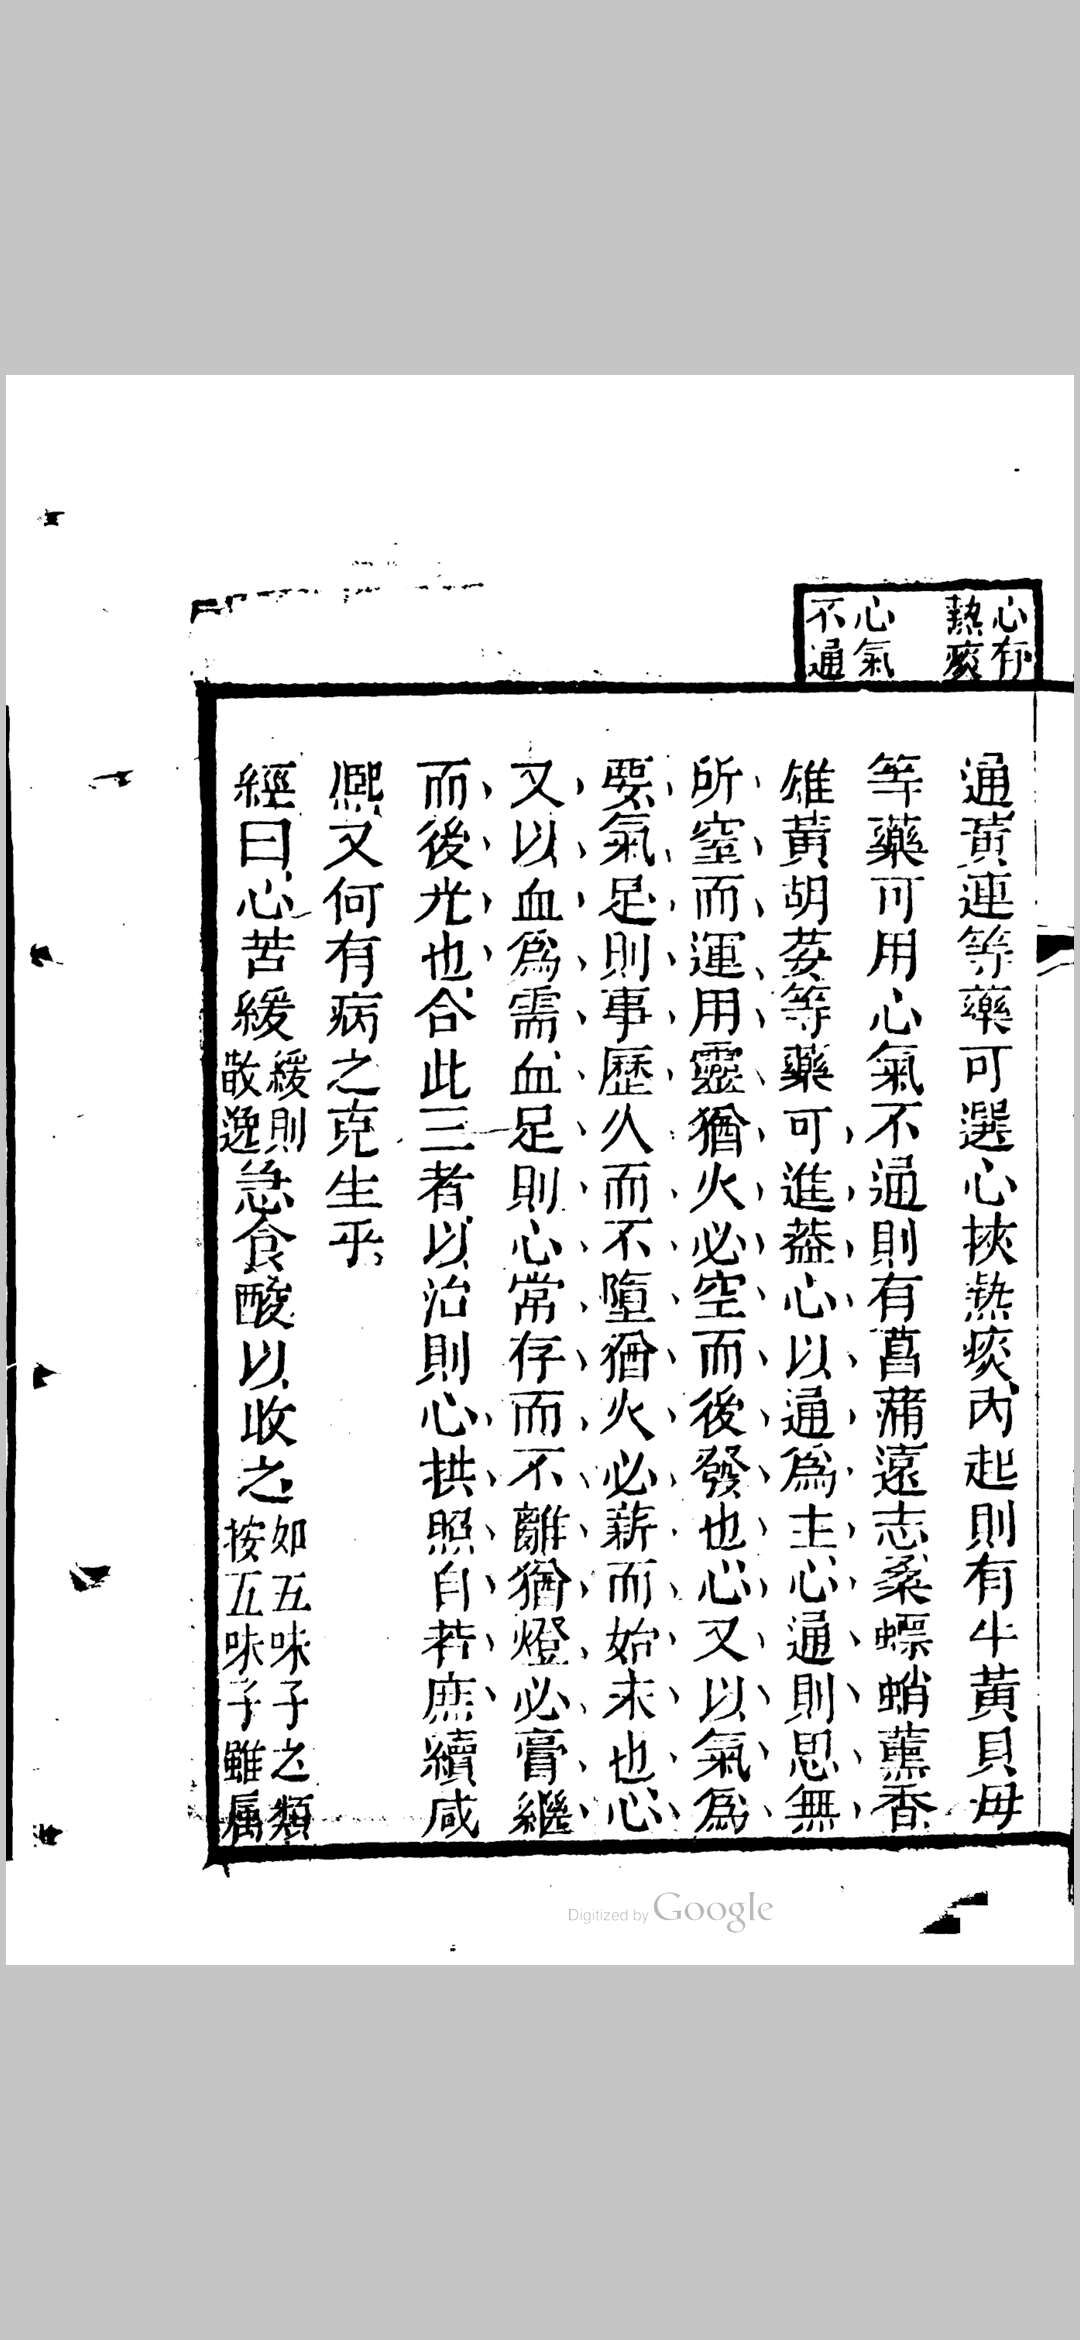 心有
熱痰
心氣
不通
通黄連等藥可選心挾熱痰内起則有牛黃貝母
等藥可用心氣不通則有菖蒲遠志桑螵蛸薰香
雄黄胡荽等藥可進蓋心以通爲主心通則思無
所窒而運用靈猶火必空而後發也心又以氣爲
要氣足則事歷久而不墮猶火必薪而始末也心
又以血爲需血足則心常存而不離猶燈必膏繼
而後光也合此三者以治則心拱照自若庶續咸
熙又何有病之克生乎
經曰心苦緩緩則散逸急食酸以收之如五味子之類按五味子雖属
Digitized by Google